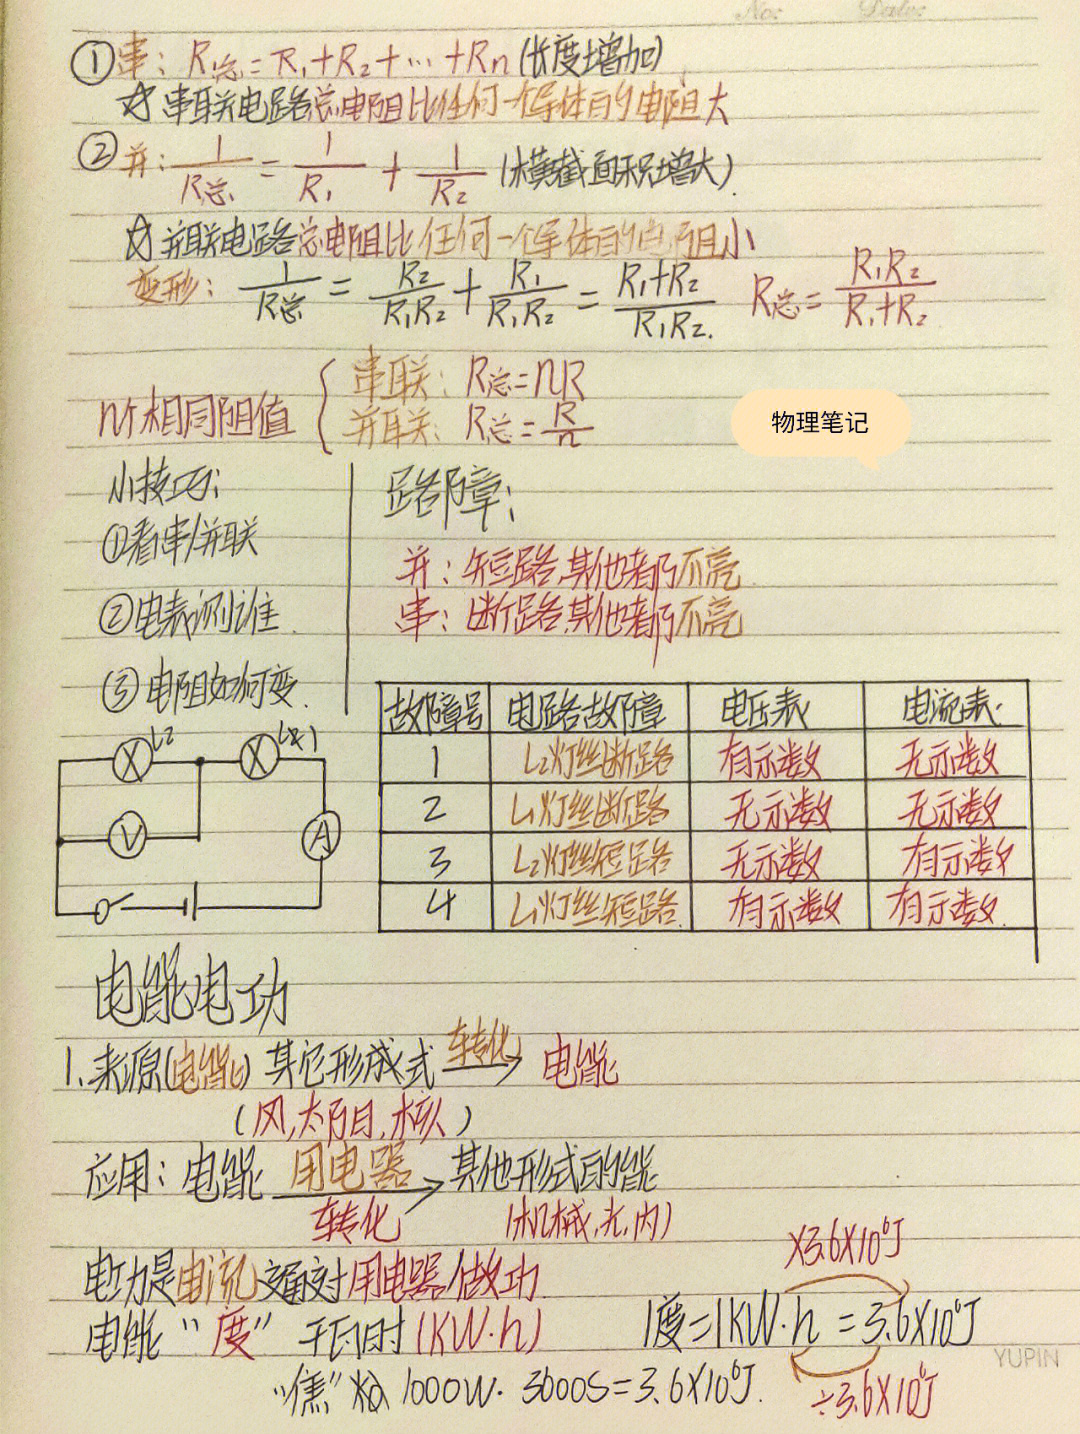 No:
Date:
①串：R总=R₁+R₂+…+Rn(长度增加)
☆串联电路总电阻比任何一个导体的电阻大
②并：1/R总=1/R₁+1/R₂(横截面积增大)
☆并联电路总电阻比任何一个导体的电阻小
变形：1/R总=R₂/R₁R₂+R₁/R₁R₂=R₁+R₂/R₁R₂. R总=R₁R₂/R₁+R₂
n个相同阻值{
串联：R总=nR
并联：R总=R/n
物理笔记
小技巧:
①看串/并联
②电表测谁
③电阻如何变.
路障:
并：短路,其他都仍不亮
串：断路,其他都仍不亮
故障号 电路故障 电压表 电流表
1 L₂灯丝断路 有示数 无示数
2 L₁灯丝断路 无示数 无示数
3 L₂灯丝短路 无示数 有示数
4 L₁灯丝短路 有示数 有示数
L2
V
A
电能电功
1.来源(电能) 其它形成式 转化→ 电能
(风,太阳,核)
应用：电能 用电器→ 其他形式的能
转化 (机械,光,内)
电功是电流通过对用电器做功
电能“度” 千瓦时(KW·h) 1度=1KW·h=3.6×10⁶J
×3.6×10⁶J
÷3.6×10⁶J
“焦” 1000W·3600S=3.6×10⁶J.
YUPIN